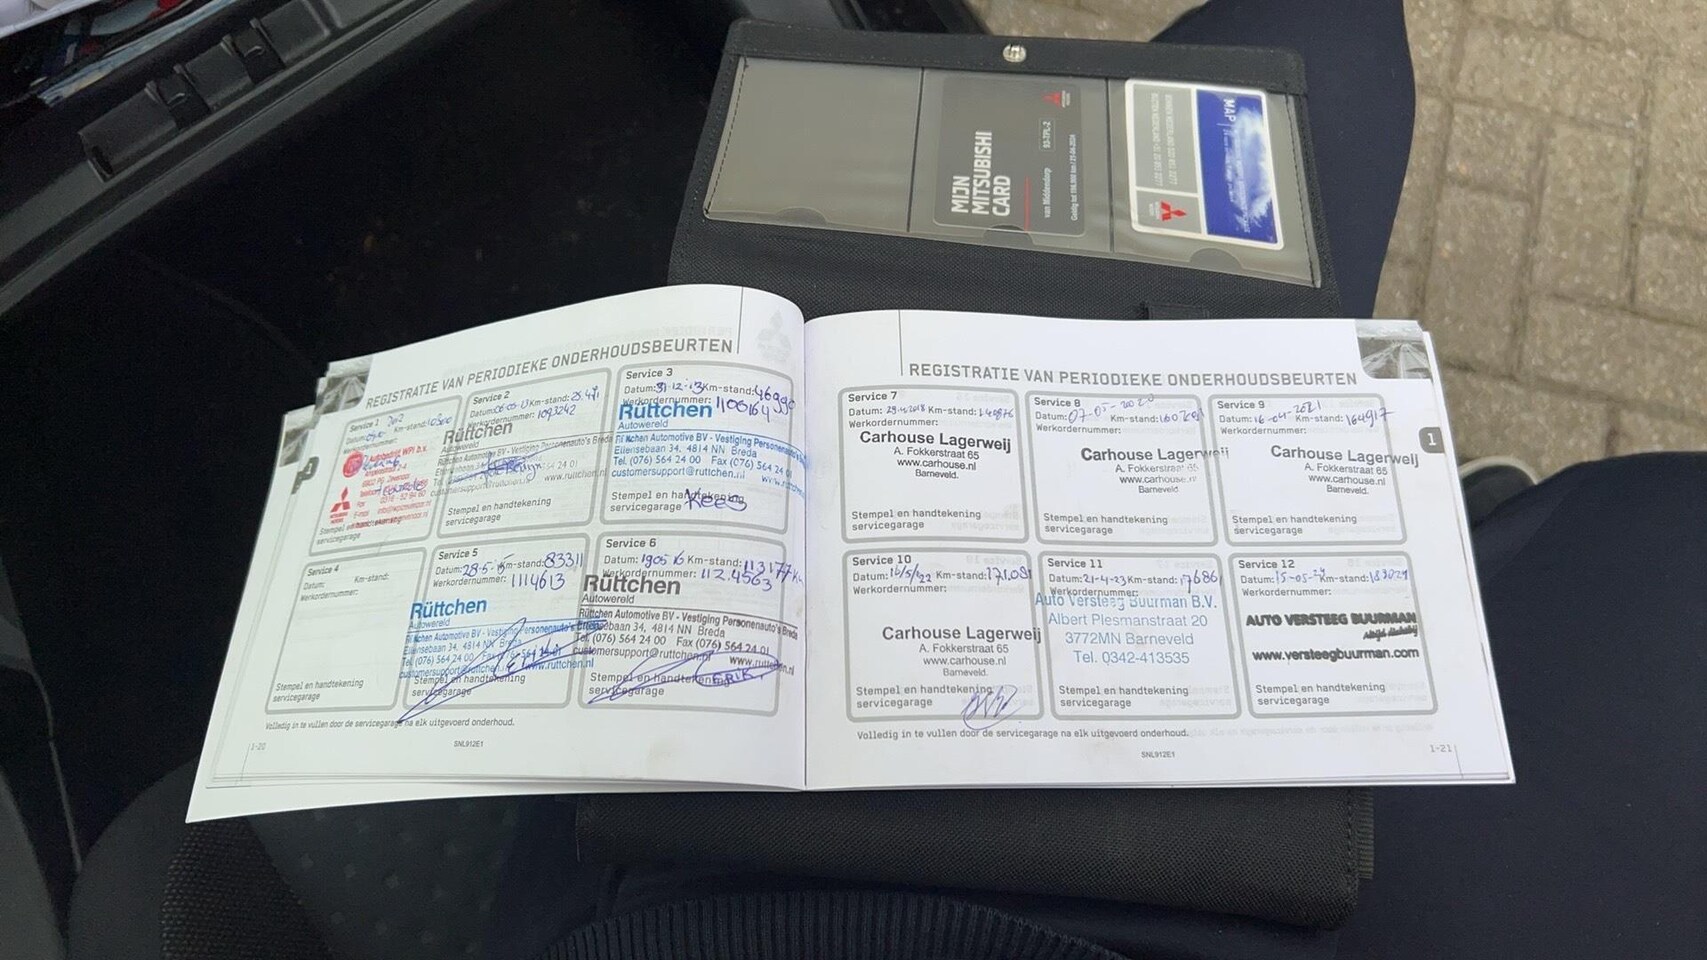 MIJN
MITSUBISHI
CARD
van Middendorp
93-TPL-2
MAP
REGISTRATIE VAN PERIODIEKE ONDERHOUDSBEURTEN
Service 1
Datum: Km-stand:
Werkordernummer:
Autobedrijf WPI b.v.
Stempel en handtekening
servicegarage
Service 2
Datum: 06-05-13 Km-stand: 28.471
Werkordernummer: 1093242
Rüttchen
Autowereld
Rüttchen Automotive BV - Vestiging Personenauto's Breda
customersupport@ruttchen.nl www.ruttchen.nl
Stempel en handtekening
servicegarage
Service 3
Datum: 31-12-13 Km-stand: 46990
Werkordernummer: 1106164
Rüttchen
Autowereld
Rüttchen Automotive BV - Vestiging Personenauto's
Ettensebaan 34, 4814 NN Breda
Tel. (076) 564 24 00 Fax (076) 564 24 01
customersupport@ruttchen.nl
Stempel en handtekening
servicegarage
Kees
Service 4
Datum: Km-stand:
Werkordernummer:
Stempel en handtekening
servicegarage
Service 5
Datum: 28-5-15 Km-stand: 83311
Werkordernummer: 1114613
Rüttchen
Autowereld
Rüttchen Automotive BV - Vestiging Personenauto's
Ettensebaan 34, 4814 NN Breda
Tel. (076) 564 24 00 Fax (076) 564 24 01
customersupport@ruttchen.nl www.ruttchen.nl
Stempel en handtekening
servicegarage
Service 6
Datum: 1905 16 Km-stand: 113177 Km
Werkordernummer: 112.4563
Rüttchen
Autowereld
Rüttchen Automotive BV - Vestiging Personenauto's Breda
Ettensebaan 34, 4814 NN Breda
Tel. (076) 564 24 00 Fax (076) 564 24 01
customersupport@ruttchen.nl www.ruttchen.nl
Stempel en handtekening
servicegarage
ERIK
Volledig in te vullen door de servicegarage na elk uitgevoerd onderhoud.
1-20
SNL912E1
REGISTRATIE VAN PERIODIEKE ONDERHOUDSBEURTEN
1
Service 7
Datum: Km-stand:
Werkordernummer:
Carhouse Lagerweij
A. Fokkerstraat 65
www.carhouse.nl
Barneveld.
Stempel en handtekening
servicegarage
Service 8
Datum: 07-05-2020 Km-stand:
Werkordernummer:
Carhouse Lagerweij
A. Fokkerstraat 65
www.carhouse.nl
Barneveld.
Stempel en handtekening
servicegarage
Service 9
Datum: 16-04-2021 Km-stand: 164917
Werkordernummer:
Carhouse Lagerweij
A. Fokkerstraat 65
www.carhouse.nl
Barneveld.
Stempel en handtekening
servicegarage
Service 10
Datum: 16/5/22 Km-stand: 171.091
Werkordernummer:
Carhouse Lagerweij
A. Fokkerstraat 65
www.carhouse.nl
Barneveld.
Stempel en handtekening
servicegarage
Service 11
Datum: 21-4-23 Km-stand: 176861
Werkordernummer:
Auto Versteeg Buurman B.V.
Albert Plesmanstraat 20
3772MN Barneveld
Tel. 0342-413535
Stempel en handtekening
servicegarage
Service 12
Datum: 15-05-24 Km-stand: 183021
Werkordernummer:
AUTO VERSTEEG BUURMAN
www.versteegbuurman.com
Stempel en handtekening
servicegarage
Volledig in te vullen door de servicegarage na elk uitgevoerd onderhoud.
SNL912E1
1-21